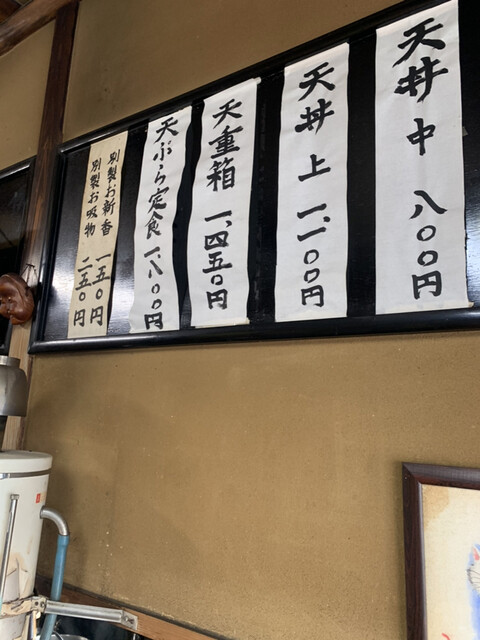 天丼 中 八〇〇円
天丼 上 一、一〇〇円
天重箱 一、四五〇円
天ぷら定食 一、八〇〇円
別製お新香 一五〇円
別製お吸物 二五〇円